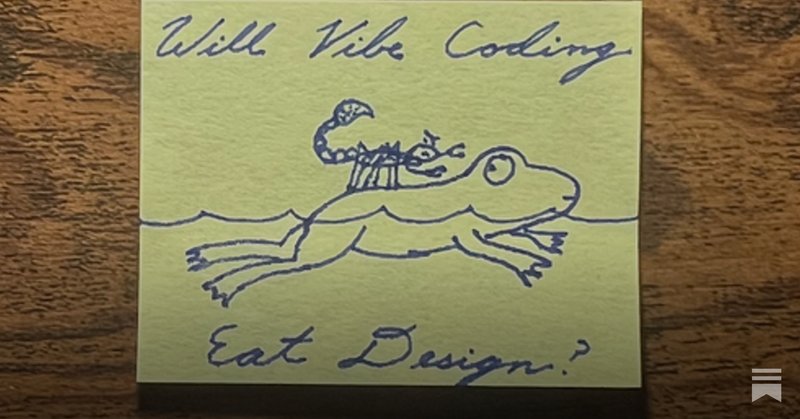 Will Vibe Coding
Eat Design?